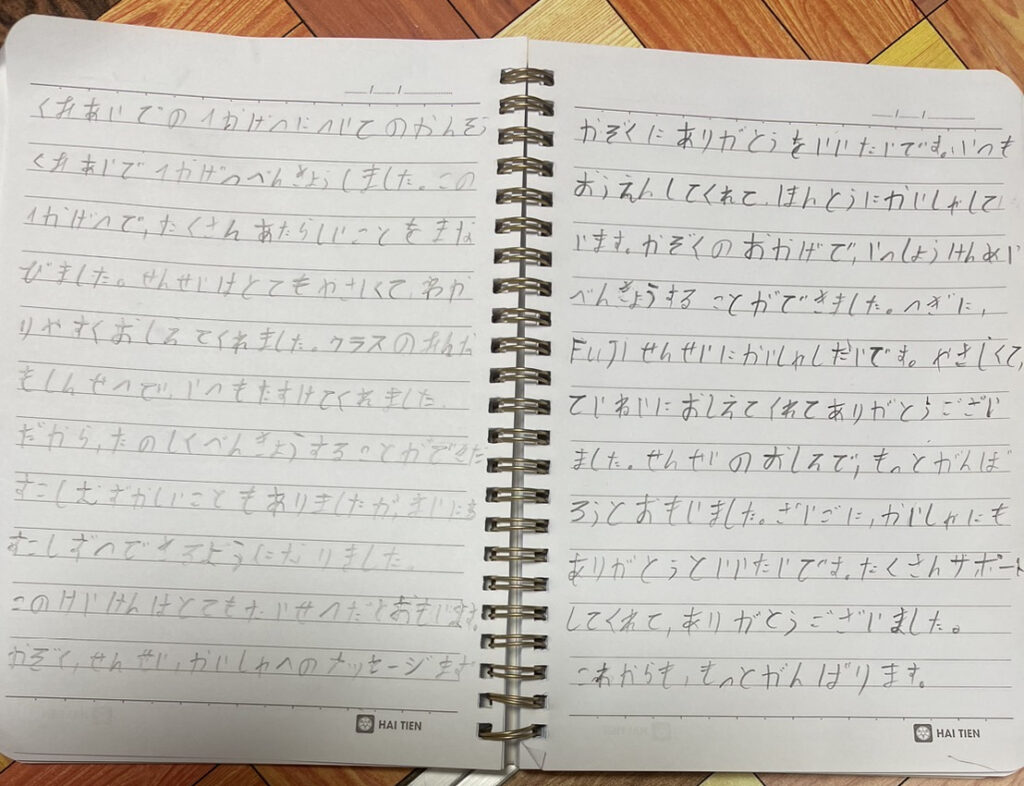 くれあじでの 1かげつについてのかんそう
くれあじで 1かげつべんきょうしました。この
1かげつで、たくさん あたらしいことを まな
びました。せんせいはとてもやさしくて、わか
りやすくおしえてくれました。クラスのみんな
もしんせつで、いつもたすけてくれました。
だから、たのしくべんきょうすることができた
すこしむずかしいことも ありましたが、まいにち
すこしずつできるようになりました。
このけいけんはとてもたいせつだとおもいます。
かぞく、せんせい、かいしゃへのメッセージます
HAI TIEN
かぞくに ありがとうを いいたいです。いつも
おうえんしてくれて、ほんとうにかいしゃして
います。かぞくの おかげで、いっしょうけんめい
べんきょうする ことができました。つぎに、
FUJI せんせいにかいしゃしたいです。やさしくて、
ていねいに おしえてくれてありがとうござい
ました。せんせいの おしえで、もっとがんば
ろうとおもいました。さいごに、かいしゃにも
ありがとうといいたいです。たくさんサポート
してくれて、ありがとうございました。
これからも、もっとがんばります。
HAI TIEN